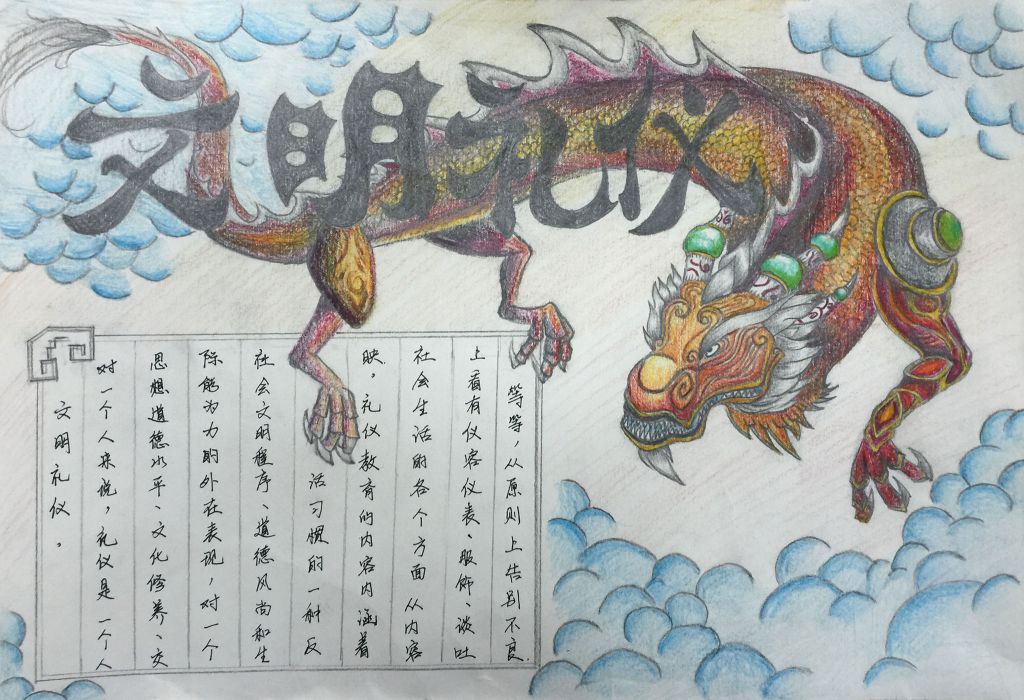 文明礼仪
文明礼仪。
对一个人来说，礼仪是一个人
思想道德水平、文化修养、交
际能为力的外在表现，对一个
社会文明程序、道德风尚和生
活习惯的一种反
映。礼仪教育的内容内涵着
社会生活的各个方面从内容
上看有仪容仪表、服饰、谈吐
等等，从原则上告别不良.